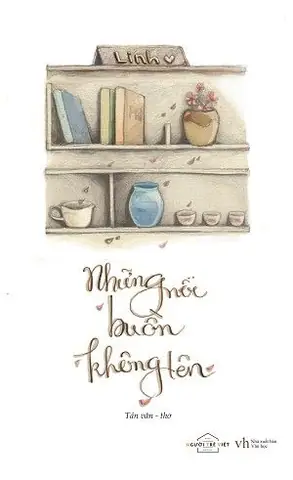 Linh
Những nỗi
buồn
không tên
Tản văn - thơ
NGƯỜI TRẺ VIỆT
vh Nhà xuất bản
Văn học